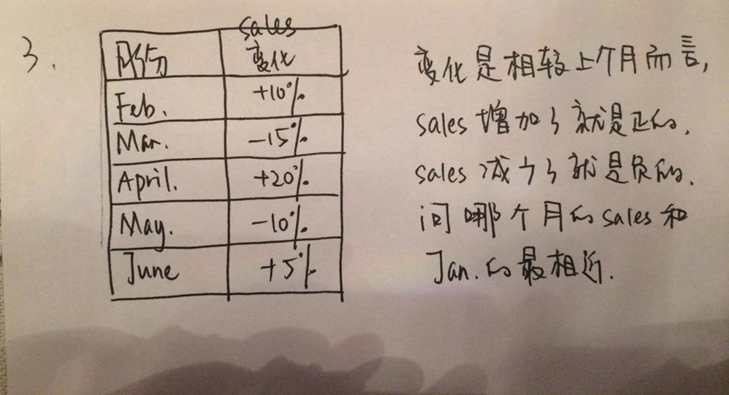 3.
月份 sales变化
Feb. +10%
Mar. -15%
April. +20%
May. -10%
June +5%
变化是相较上个月而言,
sales 增加了就是正的.
sales 减少了就是负的.
问哪个月的sales和
Jan.的最相近.